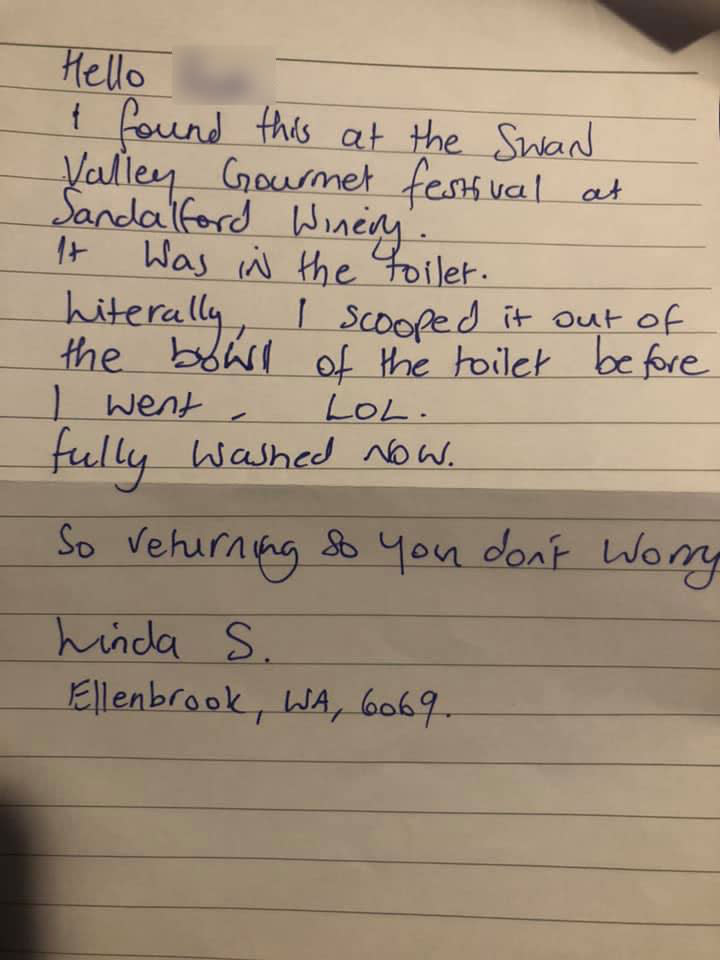 Hello
I found this at the Swan
Valley Gourmet festival at
Sandalford Winery.
It was in the toilet.
Literally, I scooped it out of
the bowl of the toilet before
I went - LOL.
fully washed now.
So returning so you don't worry
Linda S.
Ellenbrook, WA, 6069.